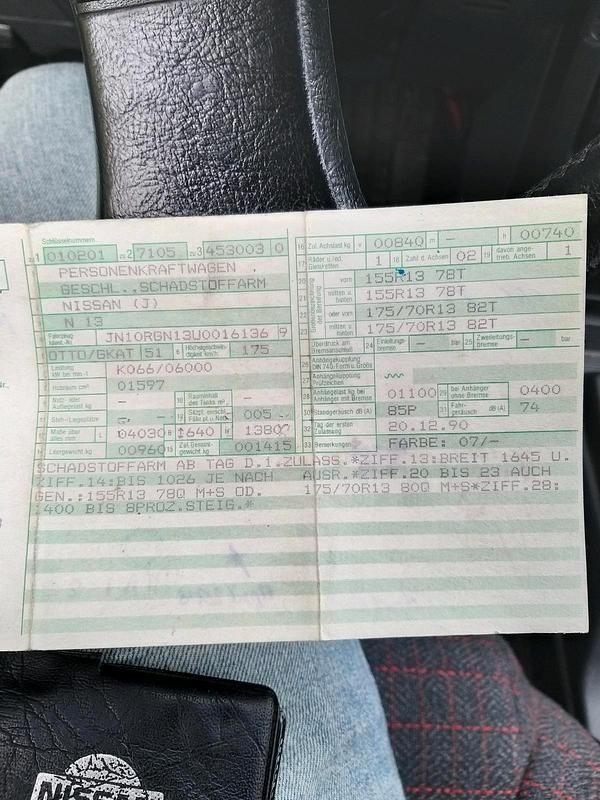 Schlüsselnummern
zu 1 010201 zu 2 7105 zu 3 453003 0
PERSONENKRAFTWAGEN
GESCHL..SCHADSTOFFARM
NISSAN (J)
N 13
JN10RGN13U0016136 9
OTTO/GKAT 51 Höchstgeschwindigkeit km/h 175
Leistung kW bei min-1 K066/06000
Hubraum cm³ 01597
Nutz- oder Aufliegelast kg – Rauminhalt des Tanks m³ –
Steh-/Liegeplätze – 005
Maße über alles mm L 04030 B 1640 H 1380
Leergewicht kg 00960 Zul. Gesamtgewicht kg 001415
16 Zul. Achslast kg v 00840 m – h 00740
17 Räder u./od. Gleisketten 1 18 Zahl d. Achsen 02 19 davon angetrieb. Achsen 1
20 vorn 155R13 78T
21 mitten u. hinten 155R13 78T
22 oder vorn 175/70R13 82T
23 mitten u. hinten 175/70R13 82T
Überdruck am Bremsanschluß 24 Einleitungsbremse – bar 25 Zweileitungsbremse – bar
26 Anhängekupplung DIN 740.. Form u. Größe
27 Anhängekupplung Prüfzeichen
Anhängelast kg bei Anhänger mit Bremse 01100 29 bei Anhänger ohne Bremse 0400
30 Standgeräusch dB (A) 85P 31 Fahrgeräusch dB (A) 74
32 Tag der ersten Zulassung 20.12.90
33 Bemerkungen FARBE: 07/–
SCHADSTOFFARM AB TAG D.1.ZULASS.*ZIFF.13:BREIT 1645 U.
ZIFF.14:BIS 1026 JE NACH AUSR.*ZIFF.20 BIS 23 AUCH
GEN.:155R13 78Q M+S OD. 175/70R13 80Q M+S*ZIFF.28:
1400 BIS 8PROZ.STEIG.*
NISSAN